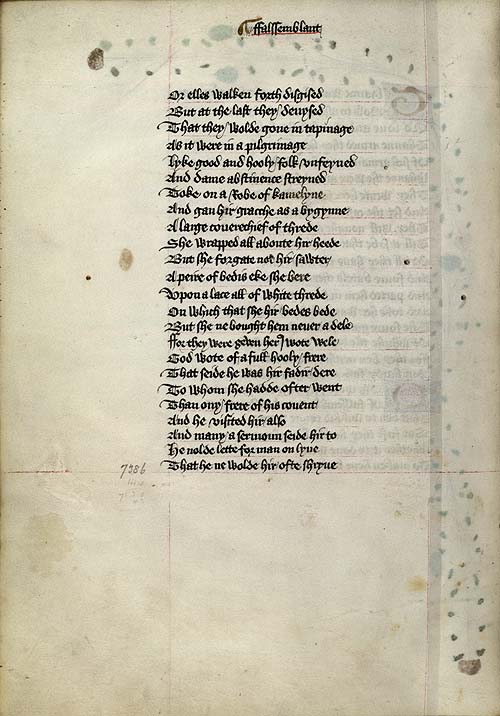 ffalssemblant
Or elles walken forth disgised
But at the last they deuysed
That they wolde gone in tapinage
As it were in a pilgrimage
Lyke good and hooly folk vnfeyned
And dame abstinence streyned
Toke on a Robe of kamelyne
And gan hir gracche as a bygynne
A large couerechief of threde
She wrapped all aboute hir heede
But she forgate not hir sawter
A peire of bedis eke she bere
Vpon a lace all of white threde
On which that she hir bedes bede
But she ne bought hem neuer a dele
ffor they were geuen her I wote wele
God wote of a full hooly frere
That seide he was hir fadir dere
To whom she hadde ofter went
Than ony frere of his couent
And he visited hir also
And many a sermoun seide hir to
He nolde lette for man on lyue
That he ne wolde hir ofte shryue
7386